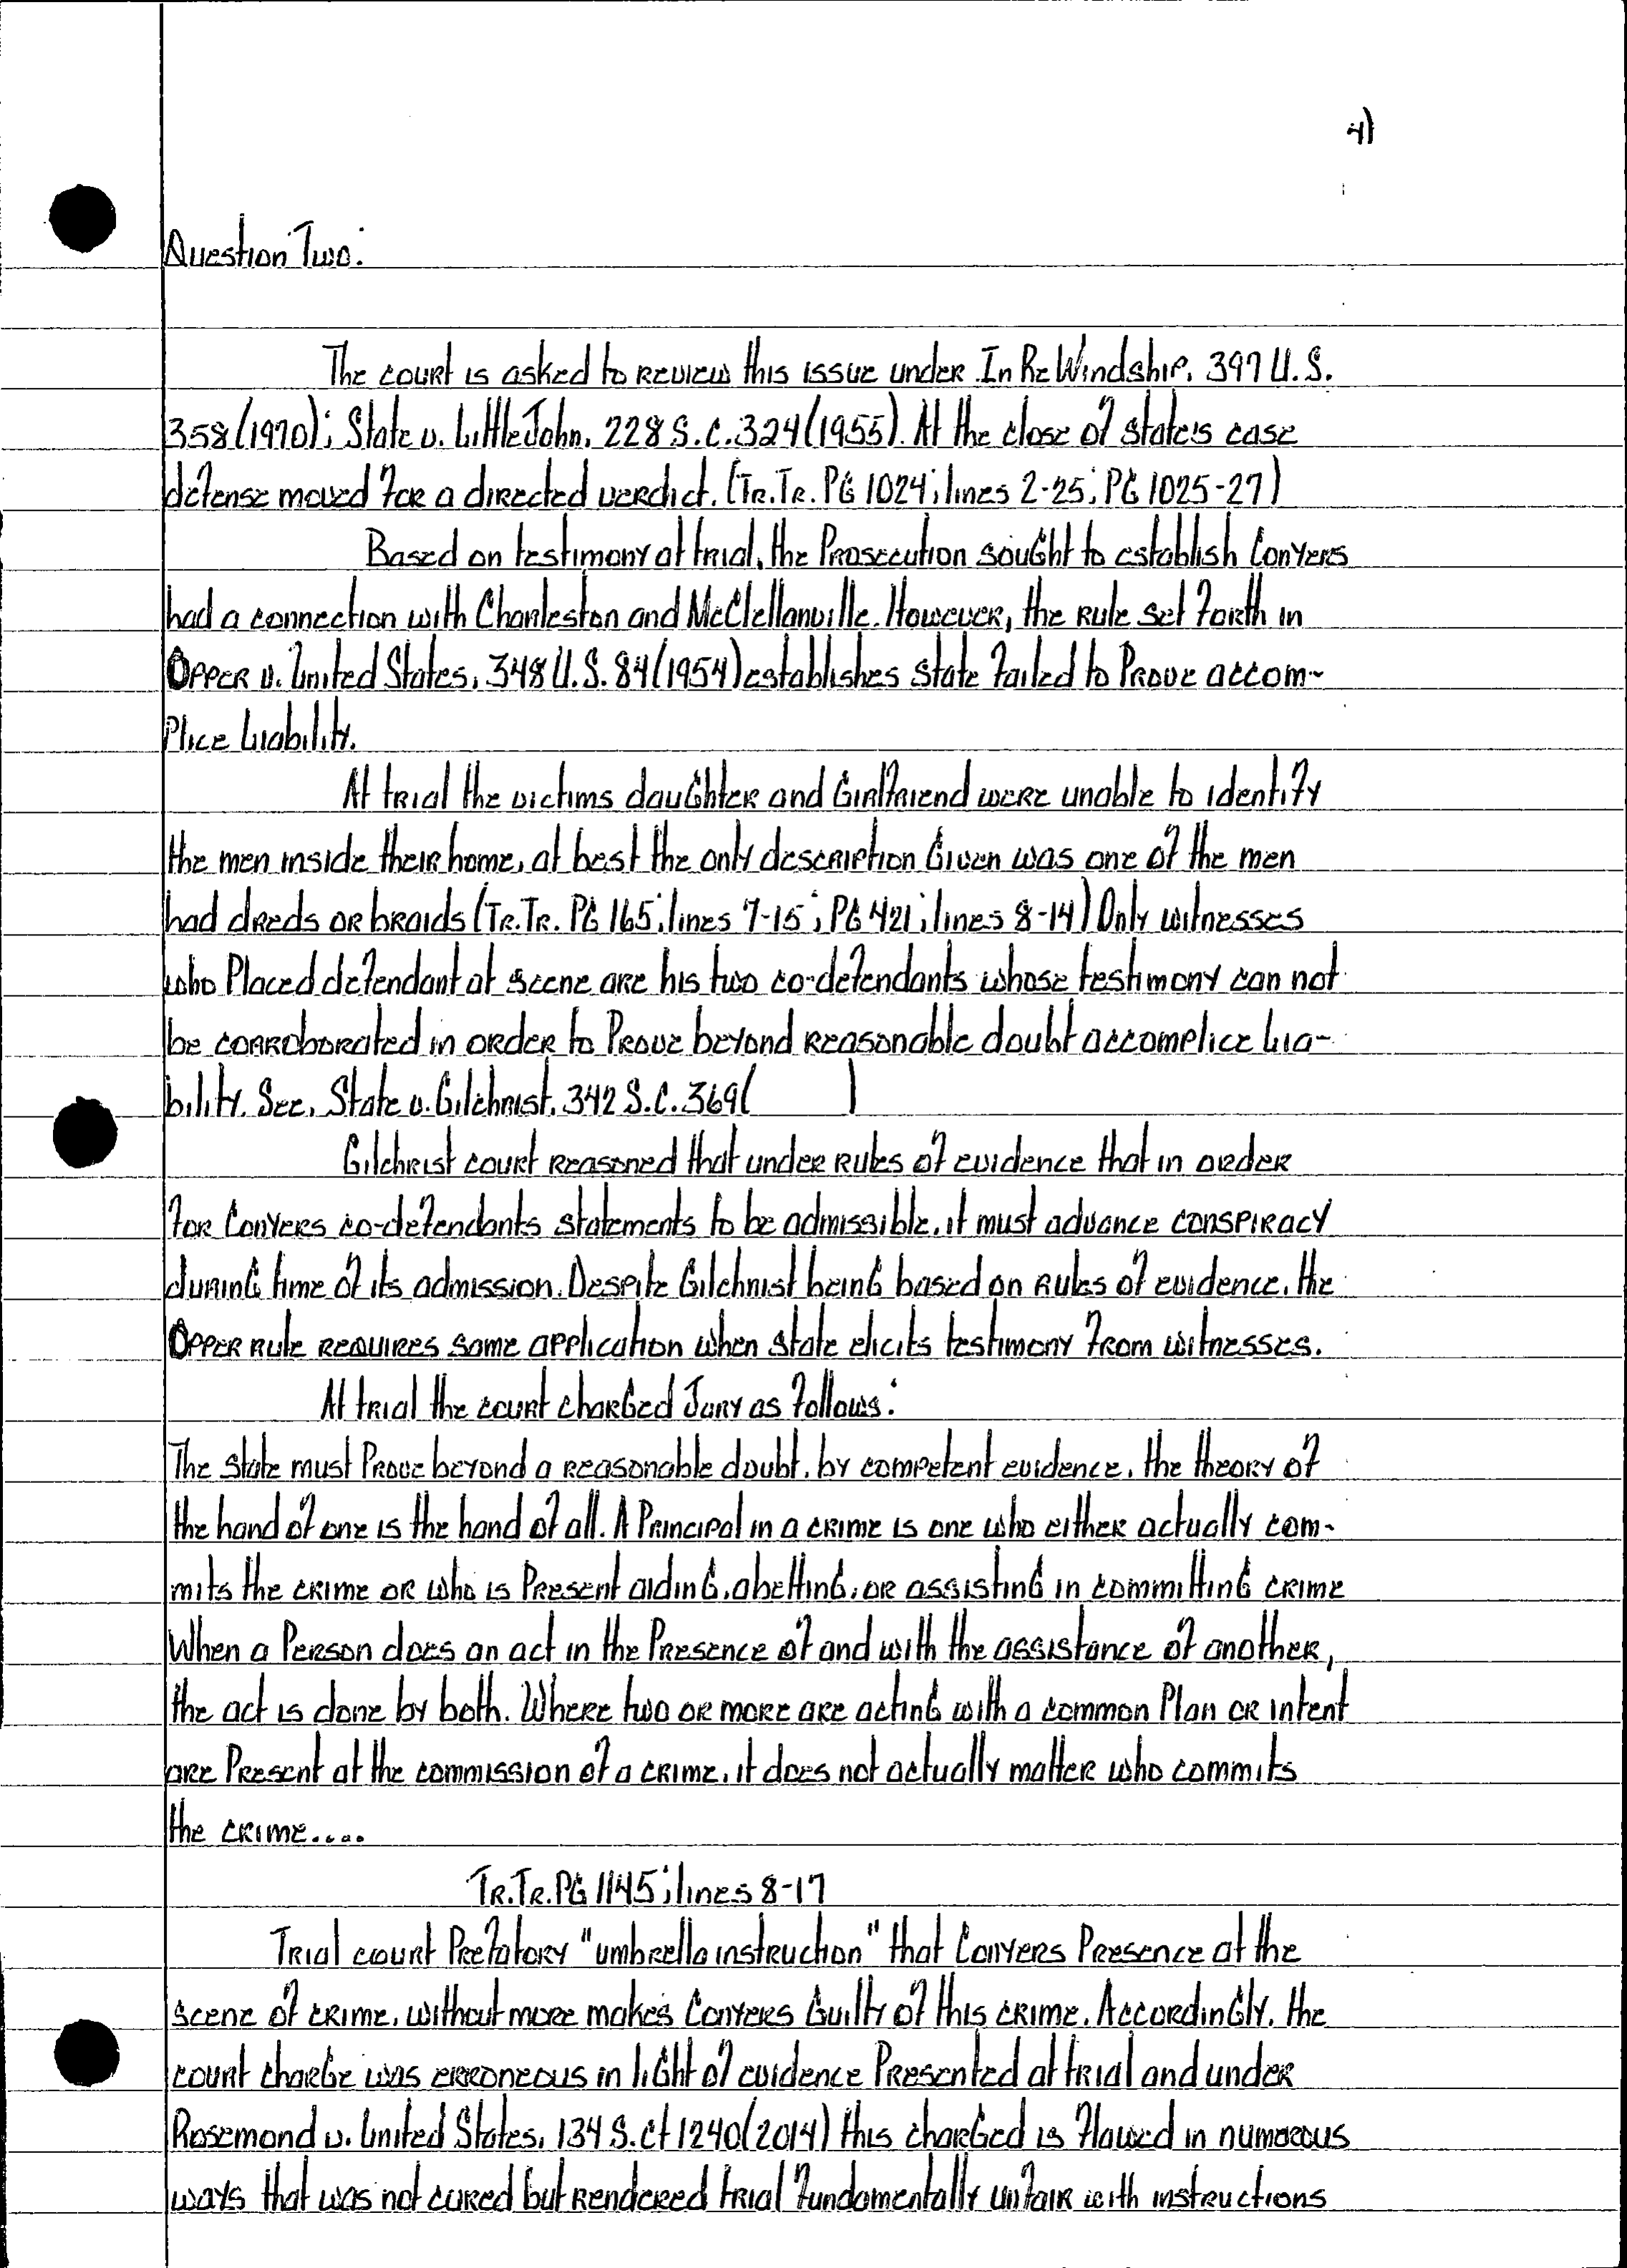 4)
Question Two:
The court is asked to review this issue under In Re Windship, 397 U.S.
358 (1970); State v. LittleJohn, 228 S.C. 324 (1955). At the close of state's case
defense moved for a directed verdict. (Tr.Tr. PG 1024; lines 2-25; PG 1025-27)
Based on testimony at trial, the Prosecution sought to establish Conyers
had a connection with Charleston and McClellanville. However, the rule set forth in
Opper v. United States, 348 U.S. 84 (1954) establishes state failed to Prove accom-
Plice Liability.
At trial the victims daughter and Girlfriend were unable to identify
the men inside their home, at best the only description Given was one of the men
had dreds or braids (Tr.Tr. PG 165; lines 7-15; PG 421; lines 8-14) Only witnesses
who Placed defendant at scene are his two co-defendants whose testimony can not
be corroborated in order to Prove beyond reasonable doubt accomplice Lia-
bility. See, State v. Gilchrist, 342 S.C. 369 ( )
Gilchrist court reasoned that under rules of evidence that in order
for Conyers co-defendants statements to be admissible, it must advance conspiracy
during time of its admission. Despite Gilchrist being based on rules of evidence, the
Opper rule requires same application when state elicits testimony from witnesses.
At trial the court charged Jury as follows:
The state must Prove beyond a reasonable doubt, by competent evidence, the theory of
the hand of one is the hand of all. A Principal in a crime is one who either actually com-
mits the crime or who is Present aiding, abetting, or assisting in committing crime
When a Person does an act in the Presence of and with the assistance of another,
the act is done by both. Where two or more are acting with a common Plan or intent
are Present at the commission of a crime, it does not actually matter who commits
the crime....
Tr.Tr. PG 1145; lines 8-17
Trial court Prefatory "umbrella instruction" that Conyers Presence at the
scene of crime, without more makes Conyers Guilty of this crime. Accordingly, the
court charge was erroneous in light of evidence Presented at trial and under
Rosemond v. United States, 134 S.Ct 1240 (2014) this charged is flawed in numorous
ways that was not cured but rendered trial fundamentally unfair with instructions